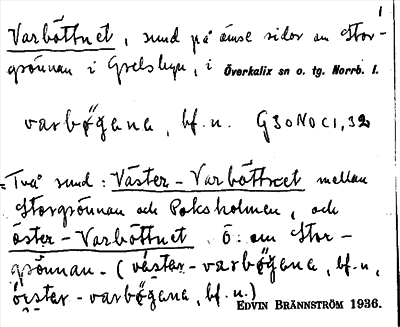 1
Varböttnet, sund på ömse sidor om Stor-
grönnan i Grelsbyn, i Överkalix sn o. tg. Norrb. l.
varbøgəna, bf. n. G30N0C1,32
= Två sund: Väster-Varböttnet mellan
Storgrönnan och Poksholmen, och
Öster-Varböttnet Ö. om Stor-
grönnan. (väster-varbøgəna, bf. n,
öster-varbøgəna, bf. n.)
EDVIN BRÄNNSTRÖM 1936.